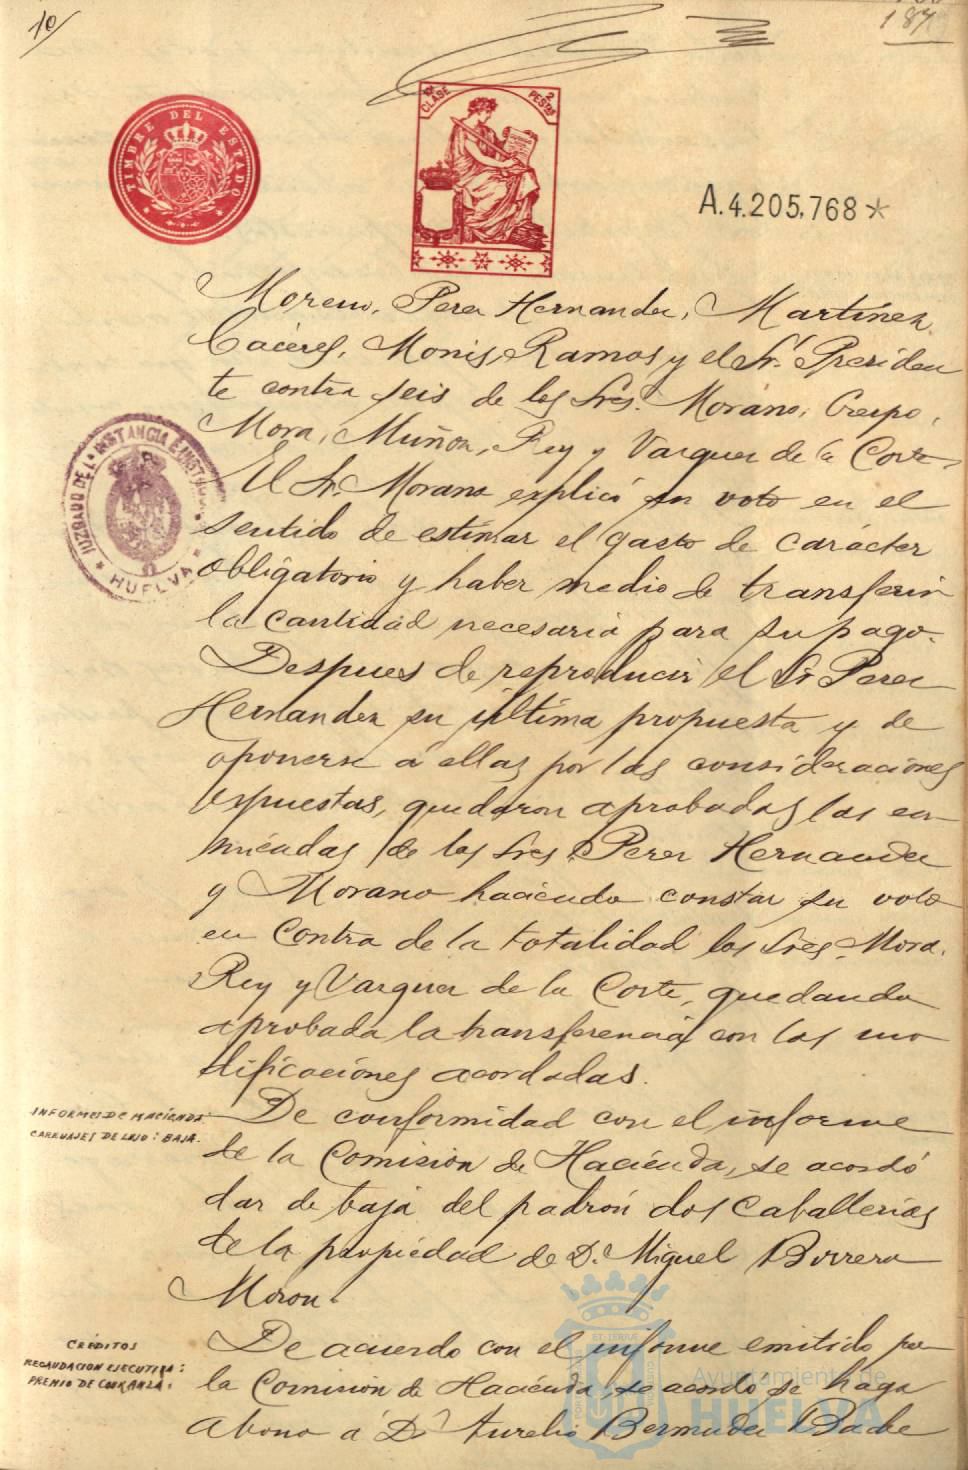 10
187
TIMBRE DEL ESTADO
10ª CLASE
2 PESTAS
A.4.205,768*
Moreno, Perez Hernandez, Martínez,
Cáceres, Monis, Ramos y el Sr. Presiden
te contra seis de los Sres. Morano, Crespo,
Mora, Muñoz, Rey y Vazquez de la Corte.
El Sr. Morano explicó su voto en el
sentido de estimar el gasto de carácter
obligatorio y haber medio de transferir
la cantidad necesaria para su pago.
JUZGADO DE 1ª INSTANCIA E INSTR
HUELVA
Despues de reproducir el Sr Perez
Hernandez su última propuesta y de
oponerse á ellas por las consideraciones
expuestas, quedaron aprobadas las en
miendas de los Sres. Perez Hernandez
y Morano haciendo constar su voto
en contra de la totalidad los Sres. Mora,
Rey y Vazquez de la Corte, quedando
aprobada la transferencia con las mo
dificaciones acordadas.
INFORMES DE HACIENDA
CARRUAJES DE LUJO: BAJA.
De conformidad con el informe
de la Comisión de Hacienda, se acordó
dar de baja del padrón dos caballerías
de la propiedad de D. Miguel Borrero
Moron.
CRÉDITOS
RECAUDACION EJECUTIVA:
PREMIO DE COBRANZA:
De acuerdo con el informe emitido por
la Comisión de Hacienda, se acordó se haga
abono á Dn Aurelio Bermudez Bache
Ayuntamiento de
HUELVA